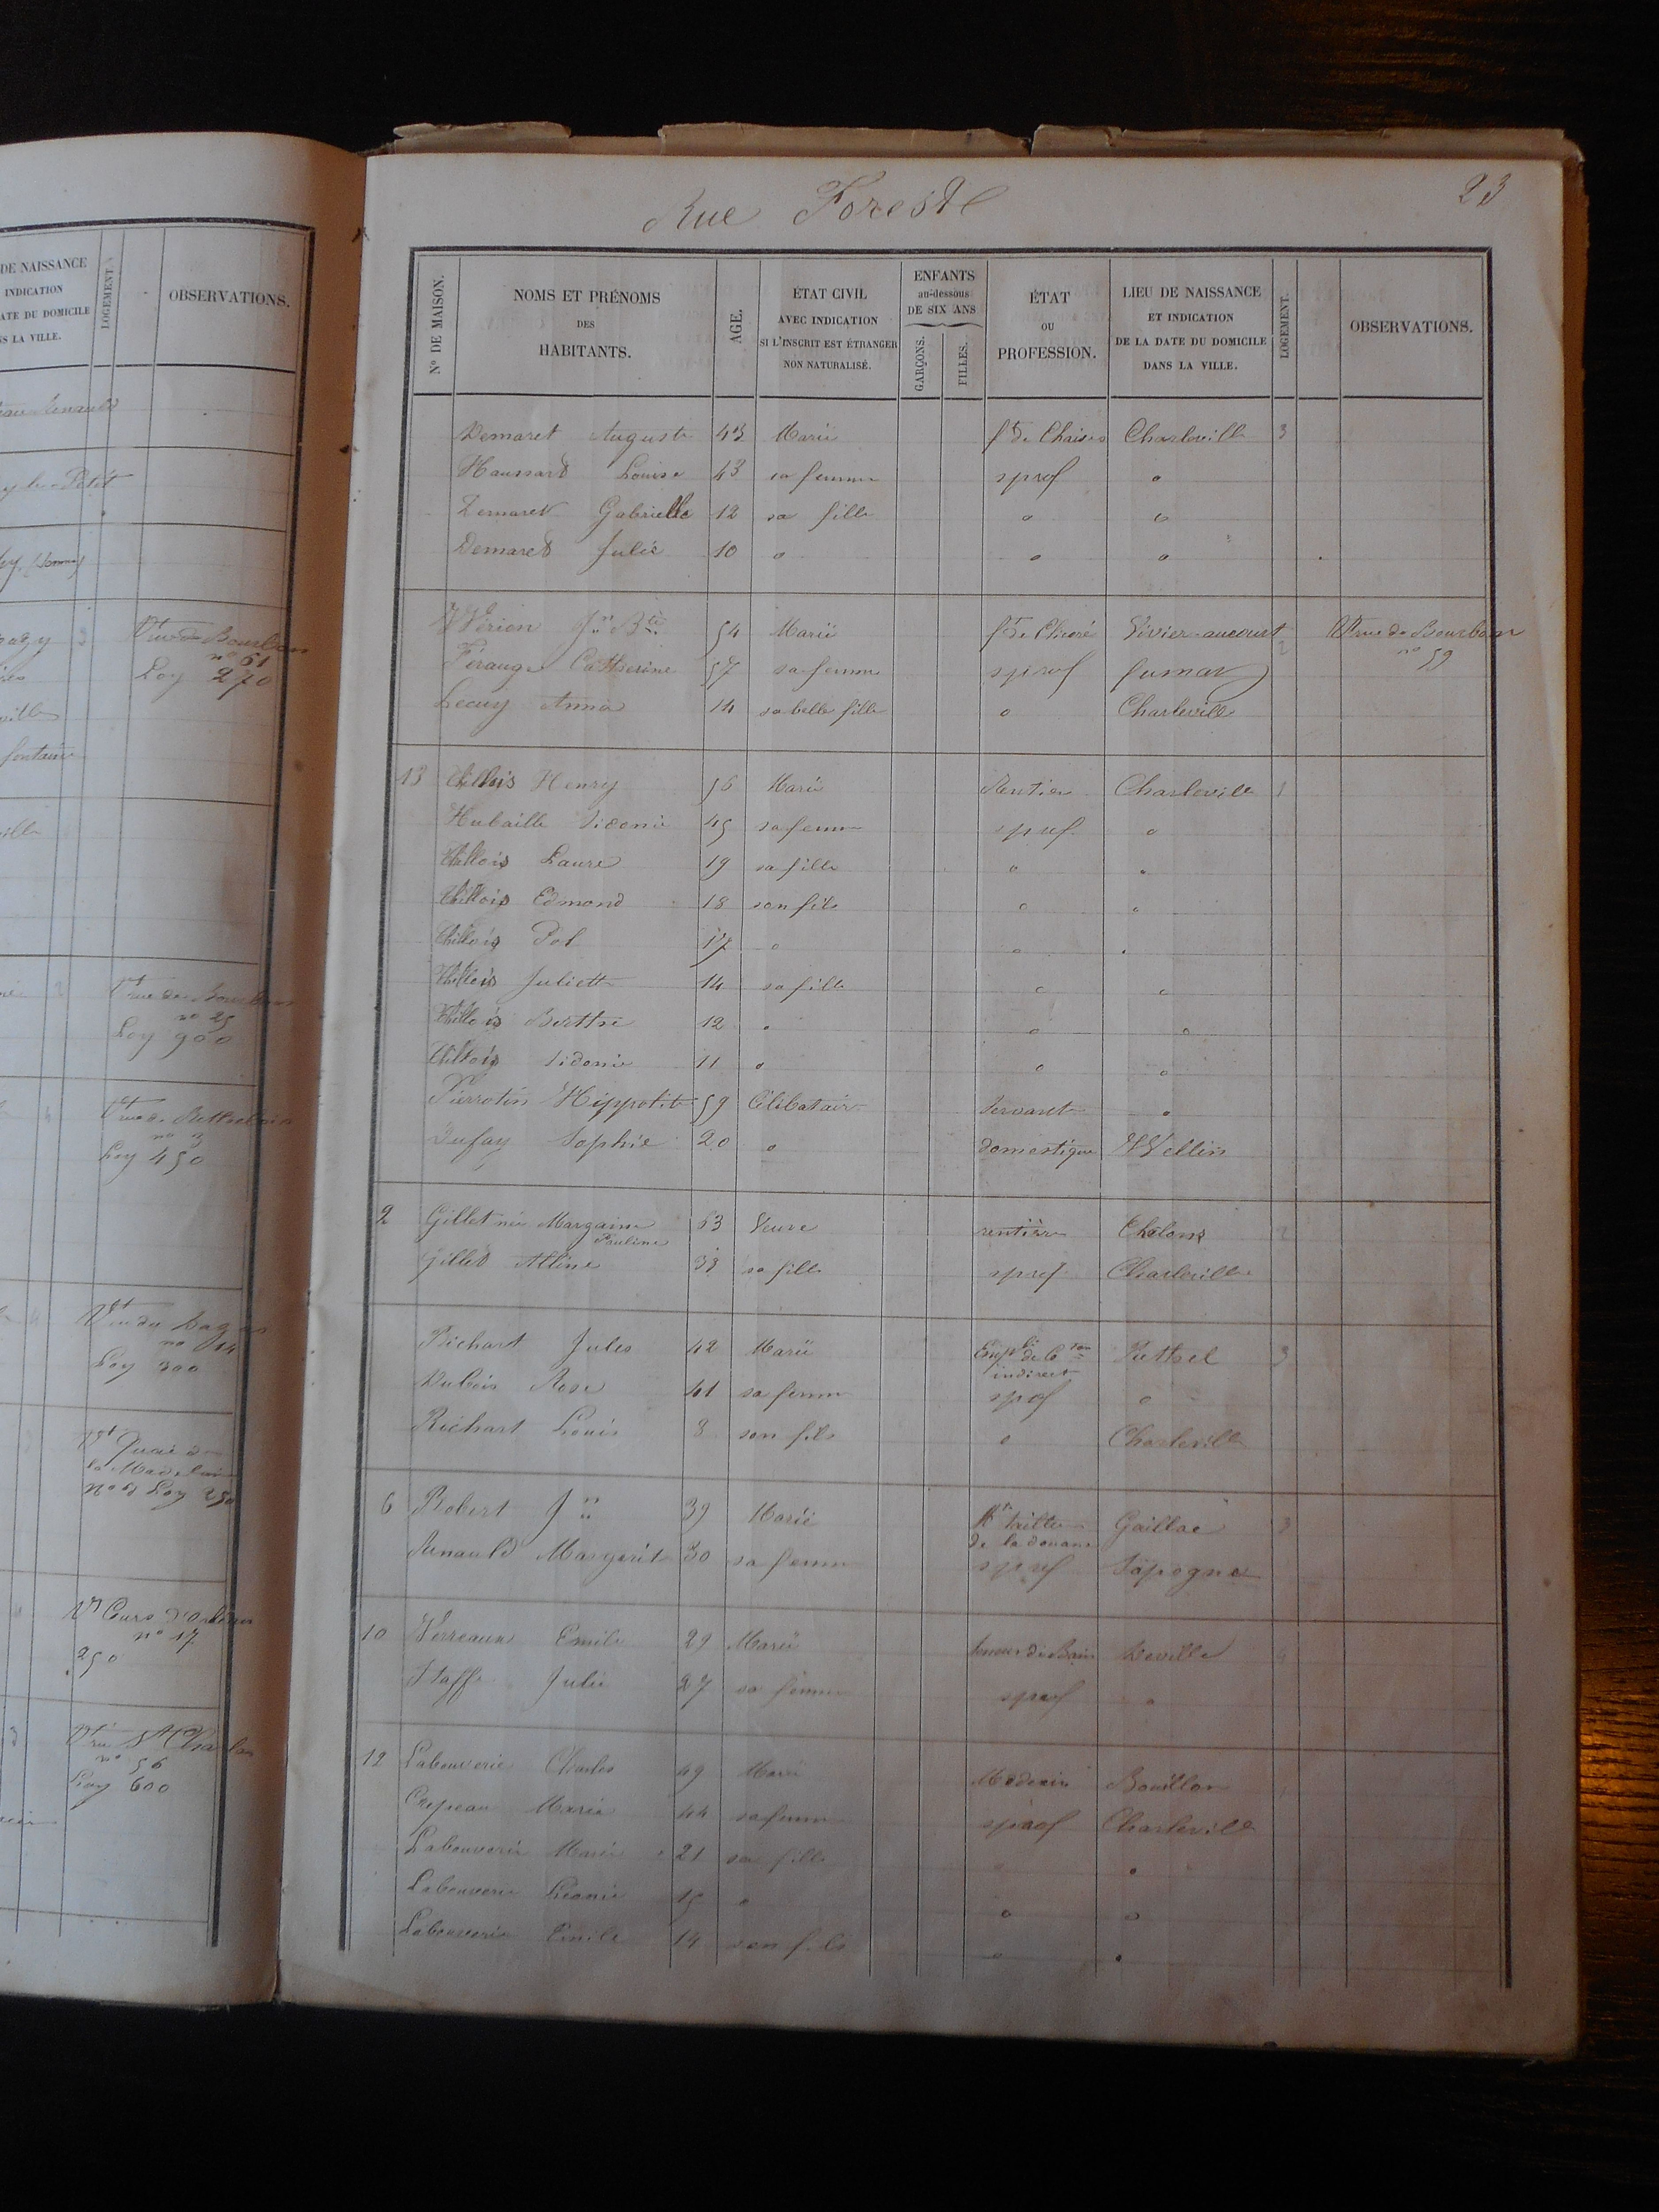 DE NAISSANCE
INDICATION
ATE DU DOMICILE
S LA VILLE.
LOGEMENT.
OBSERVATIONS.
y le Petit
Vt rue de Bourbon
no 61
Loy 270
fontaine
Vt rue de Bourbon
no 25
Loy 900
no 3
Loy 450
no 14
Loy 300
Vt Quai de
la Madelaine
Loy 250
Vt Cours d'Orléans
no 17
250
Vt rue St Charles
no 56
Loy 600
Rue Foreste
23
No DE MAISON.
NOMS ET PRÉNOMS
DES
HABITANTS.
AGE.
ÉTAT CIVIL
AVEC INDICATION
SI L'INSCRIT EST ÉTRANGER
NON NATURALISÉ.
ENFANTS
au-dessous
DE SIX ANS
GARÇONS.
FILLES.
ÉTAT
OU
PROFESSION.
LIEU DE NAISSANCE
ET INDICATION
DE LA DATE DU DOMICILE
DANS LA VILLE.
LOGEMENT.
OBSERVATIONS.
Demaret Auguste 43 Marié ft de Chaises Charleville 3
Haussard Louise 43 sa femme s prof o
Demaret Gabrielle 12 sa fille o o
Demaret Julie 10 o o o
Wérion Jn Bte 54 Marié ft de Chicoré Vivier-aucourt 2 Vt rue de Bourbon
no 59
Férauge Catherine 57 sa femme s prof fumay
Lecuy Anna 14 sa belle fille o Charleville
13 Henry 56 Marié Rentier Charleville 1
Hubaille Sidonie 45 sa femme s prof o
Laure 19 sa fille o o
Edmond 18 son fils o o
Pol 17 o o o
Juliette 14 sa fille o o
Berthe 12 o o o
Sidonie 11 o o o
Pierrotin Hippolite 59 Célibataire Servant o
Dufay Sophie 20 o domestique Wellin
2 Gillet née Margaine 63 Veuve rentière Châlons 2
Pauline
Gillet Alline 38 sa fille s prof Charleville
Richart Jules 42 Marié Empl de Cton Rethel 3
indirect
Dubois Rose 41 sa femme s prof o
Richart Louis 8 son fils o Charleville
6 Robert Jn 39 Marié Gaillac 3
de la douane
Renauld Margerite 30 sa femme s prof Sapogne
10 Verreaux Emile 29 Marié teneur de Bains Deville 4
Staffe Julie 27 sa femme s prof o
12 Labouverie Charles 49 Marié Médecin Bouillon 1
Crepeau Maria 44 sa femme s prof Charleville
Labouverie Marie 21 sa fille o o
Labouverie Léonie 15 o o o
Labouverie Emile 14 son fils o o